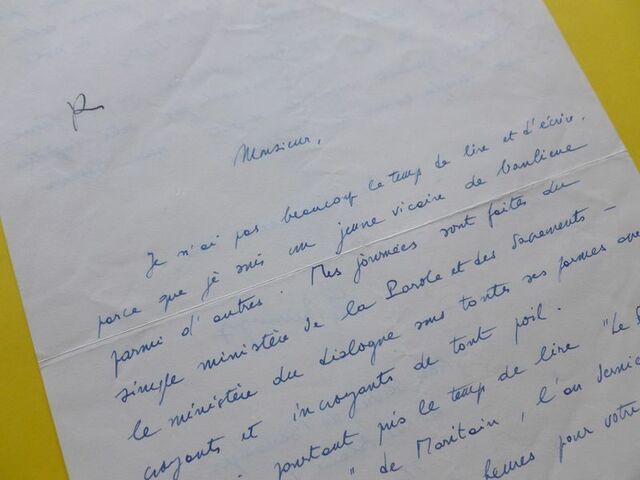 R
Monsieur,
Je n'ai pas beaucoup le temps de lire et d'écrire,
parce que je suis un jeune vicaire de banlieue
parmi d'autres. Mes journées sont faites du
simple ministère de la Parole et des Sacrements –
le ministère du dialogue sous toutes ses formes avec
croyants et incroyants de tout poil.
pourtant pris le temps de lire "Le
" de Maritain, l'an dernier
heures pour votre